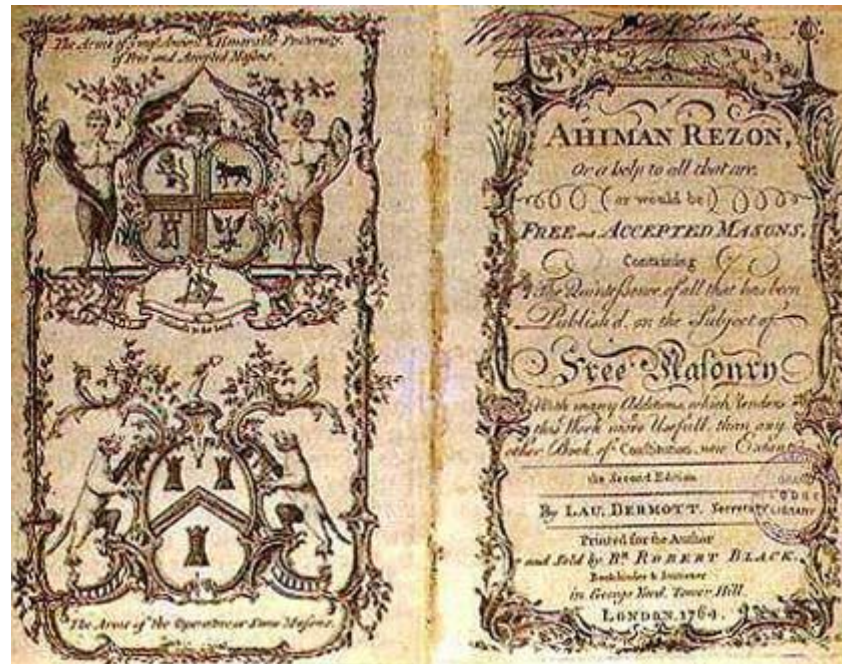 The Arms of yᵉ most Ancient & Honorable Fraternity,
of Free and Accepted Masons.
Holiness to the Lord
The Arms of the Operative or Stone Masons.
AHIMAN REZON,
Or a help to all that are,
(or would be)
FREE and ACCEPTED MASONS,
Containing
The Quintessence of all that has been
Publish'd on the Subject of
Free Masonry
With many Additions, which renders
this Work more Usefull, than any
other Book of Constitution, now Extant.
the Second Edition
By LAU. DERMOTT. Secretary
Printed for the Author
and Sold by Bʀ ROBERT BLACK.
Bookbinder & Stationer
in George Yard, Tower Hill.
LONDON, 1764.
GRAND
LODGE
LIBRARY